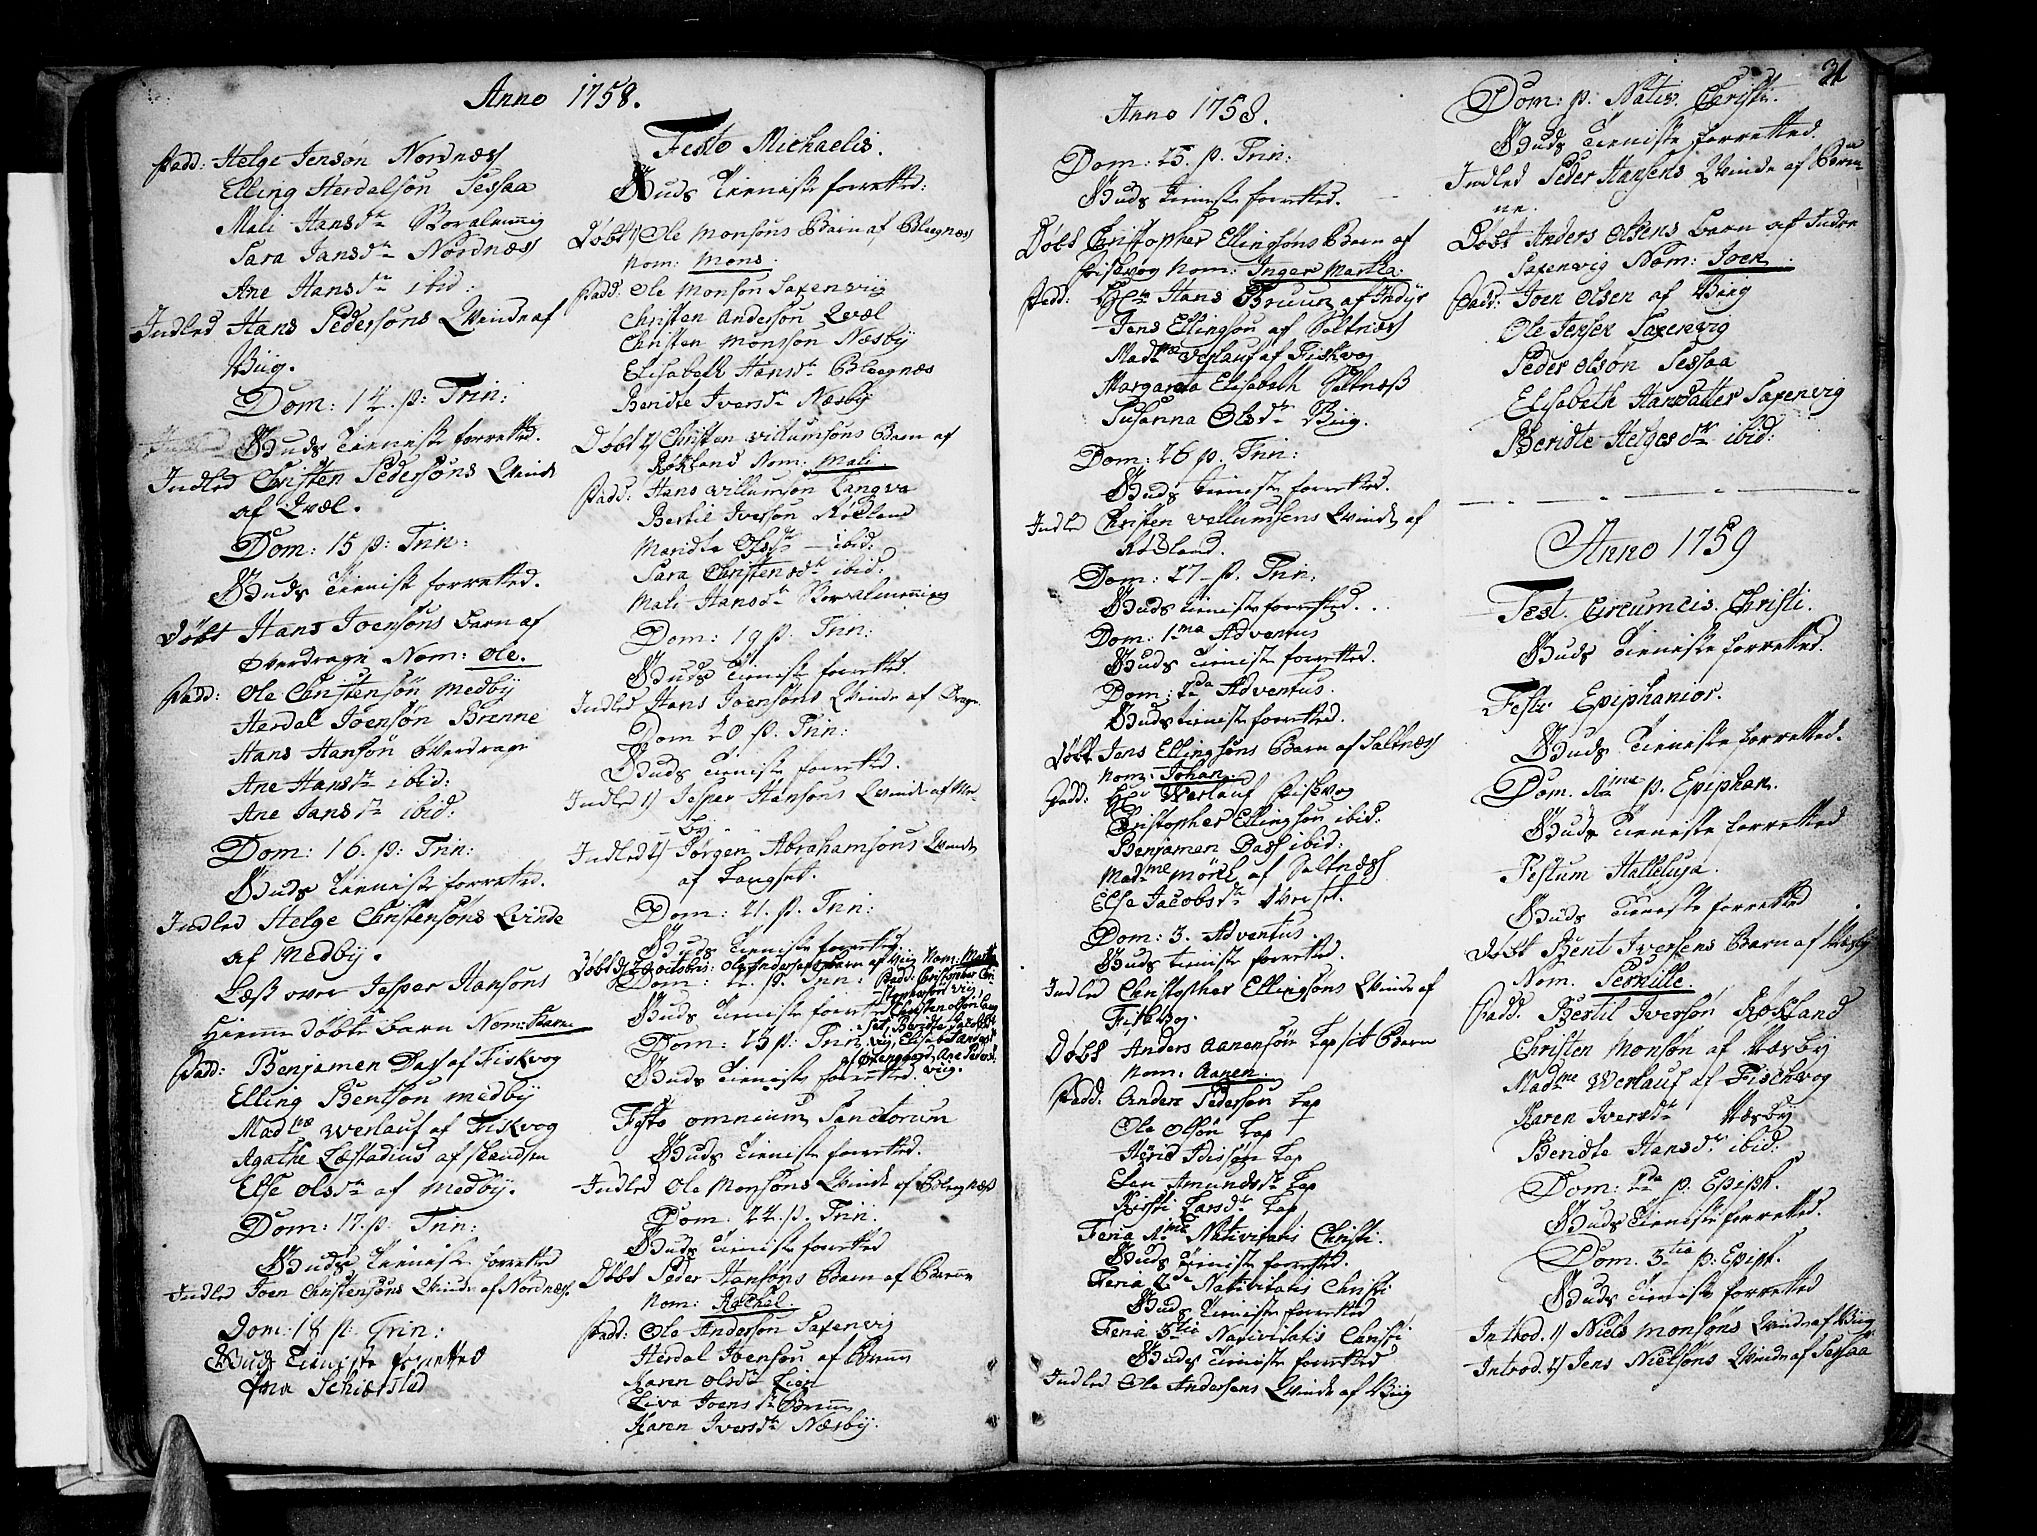 Anno 1758.
Fadd: Helge Jensøn Nordnæss
Elling Herdalsøn Sessaa
Mali Hansdr
Sara Jansdr Nordnæss
Ane Hansdr ibid:
Indled Hans Pedersøns Qvinde af
Viig.
Dom: 14. p: Trin:
Guds Tieniste forretted.
Indled Christen Pedersøns Qvinde
af Qvæl.
Dom: 15 p: Trin:
Guds Tieniste forretted.
Døbt Hans Joensøns barn af
Øverdragn Nom: Ole.
Fadd: Ole Christensøn Medby
Herdal Joensøn Brenne
Hans Hansøn Øverdragn
Ane Hansdr ibid:
Ane Jansdr ibid:
Dom: 16. p: Trin:
Guds Tieniste forretted.
Indled Helge Christensøns Qvinde
af Medby.
Læst over Jesper Hansøns
Hiemme døbte barn Nom:
Fadd: Benjamen Dass af Fiskvog
Elling Bentsøn Medby
Madme Werlauf af Fiskvog
Agathe Læstadius af
Else Olsdr af Medby.
Dom: 17. p: Trin:
Guds Tieniste forretted
Indled Joen Christensøns Qvinde af Nordnæss
Dom: 18 p: Trin:
Guds Tieniste forretted
Festo Michaelis.
Guds Tieniste forretted:
Døbt 1) Ole Monsøns Barn af Blegnæs
Nom: Mons.
Fadd: Ole Monsøn Saxenvig
Christen Andersøn Qvæl
Christen Monssøn Næsby
Elisabeth Hansdr Blegnæs
Beridte Iversdr Næsby
Døbt 2) Christen Villumsøns Barn af
Røkland Nom: Mali.
Fadd: Hans Villumsøn
Bertil Iversøn Røkland
Maridte Olsdr ibid:
Sara Christensdr ibid:
Mali Hansdr
Dom: 19 p: Trin:
Guds Tieniste forretted.
Indled Hans Joensøns Qvinde af
Dom 20 p: Trin:
Guds Tieniste forretted.
Indled 1) Jesper Hansøns Qvinde af Med-
by
Indled 2) Jørgen Abrahamsøns Qvinde
af Langset.
Dom: 21. p. Trin:
Guds Tieniste forretted.
Døbt Ole Andersøns Barn af Viig Nom:
Dom: 22. p. Trin:
Guds Tieniste forretted
Dom: 23 p: Trin
Guds Tieniste forretted.
Festo omnium Sanctorum
Guds Tieniste forretted.
Indled Ole Monsøns Qvinde af Blegnæss
Dom: 24. p. Trin.
Guds Tieniste forretted
Døbt Peder Hansøns Barn af Brenne
Nom: Rachel.
Fadd: Ole Andersøn Saxenvig
Herdal Joensøn af Brenne
Karen Olsdr
Liva Joensdr Brenne
Karen Iversdr Næsby.
Anno 1758.
Dom: 25. p. Trin:
Guds Tieniste forretted.
Døbt Christopher Ellingsøns Barn af
Fiskvog Nom: Inger Martha.
Fadd: Hr Hans Bruun af Indyr
Jens Ellingsøn af Saltnæss
Madme Verlauf af Fiskvog
Margareta Elisabeth Saltnæss
Susanna Olsdr Viig.
Dom: 26 p. Trin:
Guds Tieniste forretted.
Indled Christen Vellumsens Qvinde af
Røkland.
Dom: 27. p. Trin:
Guds Tieniste forretted...
Dom: 1ma Adventus
Guds Tieniste forretted.
Dom: 2da Adventus.
Guds Tieniste forretted.
Døbt Jens Ellingsøns Barn af Saltnæss
Nom: Johan.
Fadd: Hr Werlauf Fiskvog
Christopher Ellingsøn ibid:
Benjamen Dass ibid:
Madme Mörch af Saltnæss
Else Jacobsdr Øverset.
Dom: 3. Adventus.
Guds Tieniste forretted.
Indled Christopher Ellingsøns Qvinde af
Fiskvog.
Døbt Anders Aanensøn Lap sit Barn
Nom: Aanen.
Fadd: Anders Pedersøn Lap
Ole Olsøn Lap
Lap
Amundsdr Lap
Kirsti Larsdr Lap
Feria 1me Nativitatis Christi.
Guds Tieniste forretted.
Feria 2da Nativitatis Christi
Guds Tieniste forretted
Feria 3tia Nativitatis Christi
Guds Tieniste forretted
Indled Ole Andersens Qvinde af Viig
31
Dom: p. Nativ. Christi.
Guds Tieniste forretted.
Indled Peder Hansens Qvinde af Bren-
ne.
Døbt Anders Olsens barn af Indre
Saxenvig Nom: Joen.
Fadd: Joen Olsen af Viig
Ole Jensen Saxenvig
Peder Olsøn Sessaa
Elisabeth Hansdatter Saxenvig
Beridte Helgesdr ibid:
Anno 1759
Fest. Circumcis. Christi.
Guds Tieniste forretted.
Festo Epiphanior.
Guds Tieniste forretted.
Dom. 1me p. Epiphan.
Guds Tieniste forretted
Festum Halleluja.
Guds Tieniste forretted
Døbt Bent Iversens Barn af Næsby
Nom. Pernille.
Fadd. Bertil Iversøn Røkland
Christen Monsøn af Næsby
Madme Werlauf af Fischvog
Karen Iversdr Næsby
Beridte Hansdr ibid:
Dom: 2da p. Epiph.
Guds Tieniste forretted.
Dom. 3tia p: Epiph.
Guds Tieniste forretted
Introd. 1) Niels Monsøns Qvinde af Viig
Introd. 2) Jens Nielsøns Qvinde af Sessaa